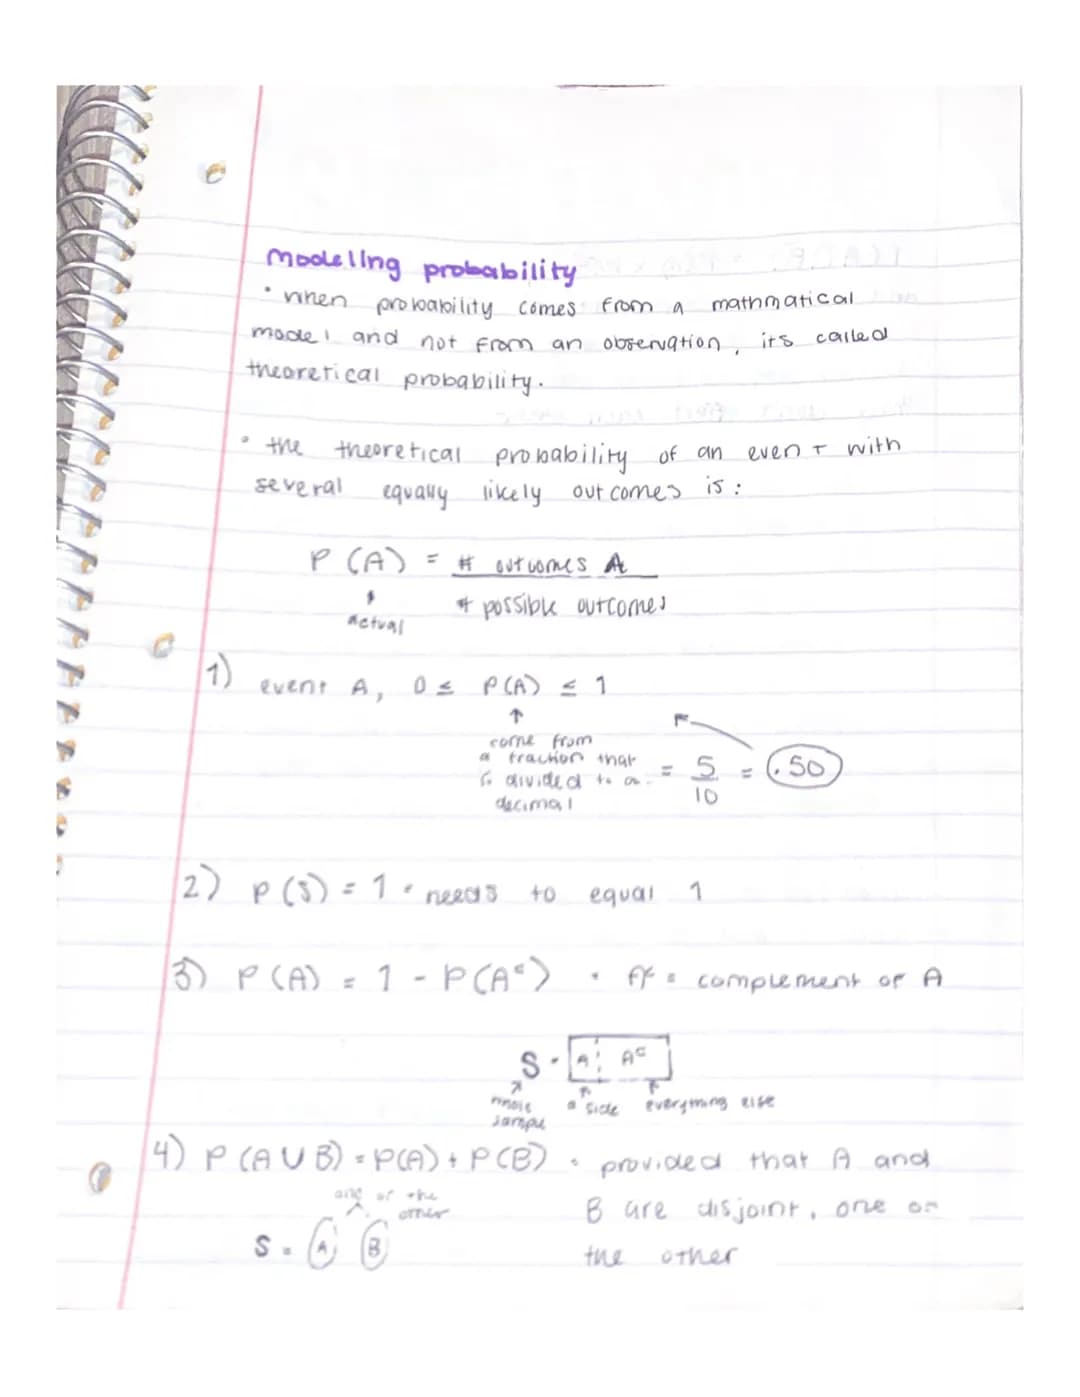 modeling probability
• when probability comes from a mathmatical
model and not from an observation, its called
theoretical probability.
• the theoretical probability of an event with
several equally likely outcomes is:
P (A) = # outcomes A
# possible outcomes
actual
1) event A, 0 ≤ P(A) ≤ 1
↑
come from
a fraction that
is divided to a = 5/10 = .50
decimal
2) P (S) = 1 • needs to equal 1
3) P (A) = 1 - P(Aᶜ) • Aᶜ = complement of A
S = A Aᶜ
whole a side everything else
sample
4) P (A U B) = P(A) + P(B) • provided that A and
one or the
other
B are disjoint, one or
S = A B
the other